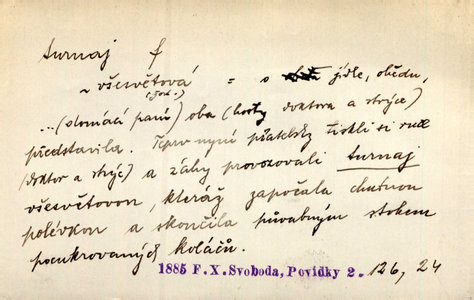 turnaj f
~ všesvětová = o jídle, obědu,
(žert.)
...(domácí paní) oba (hosty doktora a strýce)
představila. Teprv nyní přátelsky tiskli si ruce
(doktor a strýc) a záhy provozovali turnaj
všesvětovou, kteráž započala chutnou
polévkou a skončila půvabným stohem
pocukrovaných koláčů.
1885 F.X.Svoboda, Povídky 2. 126, 24